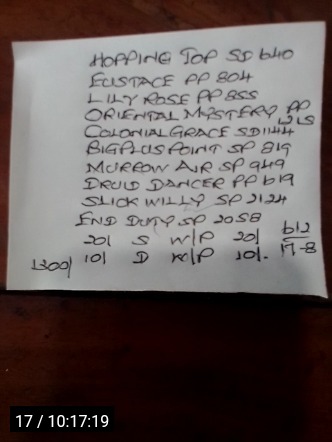 HOPPING TOP SD 640
EUSTACE PP 804
LILY ROSE PP 855
ORIENTAL MYSTERY PP 1215
COLONIAL GRACE SD 1144
BIGPLUS POINT SP 819
MURROW AIR SP 949
DRUID DANCER PP 619
SLICK WILLY SP 2124
END DUTY SP 2058
20/ S W/P 20/ 612
10/ D W/P 10/. 17-8
17 / 10:17:19